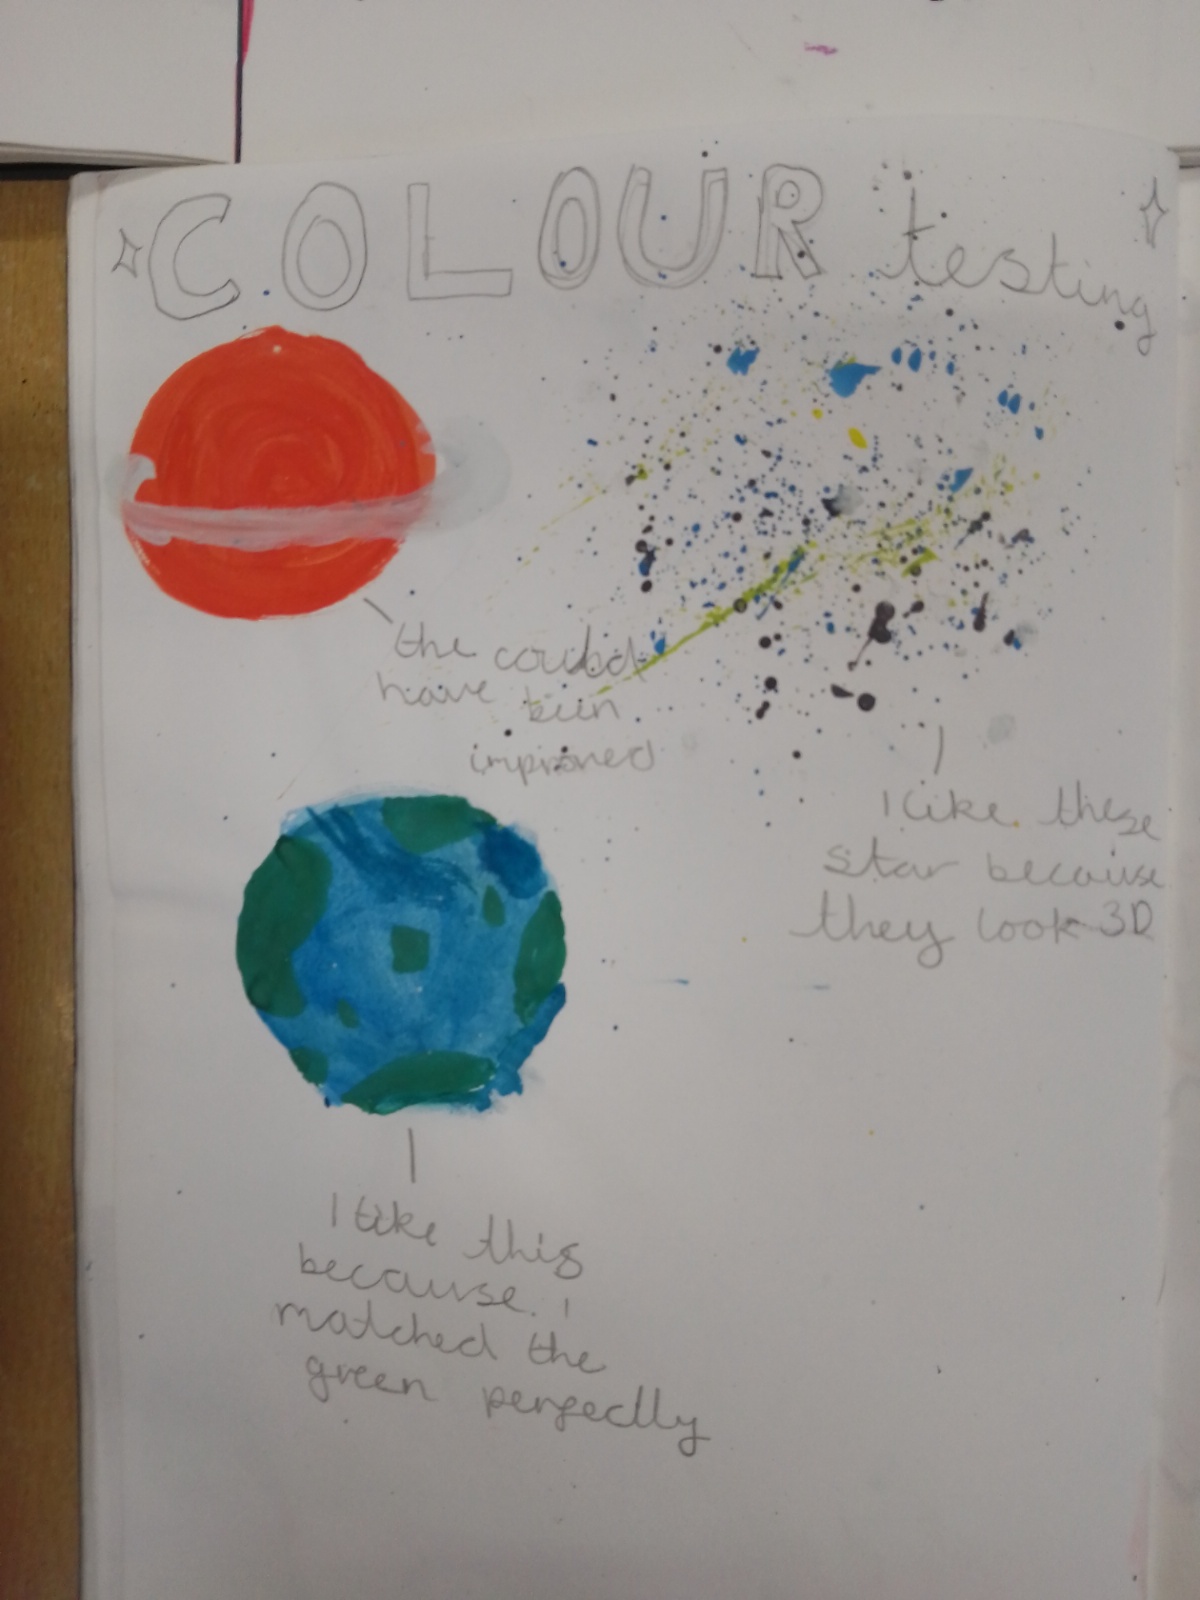 COLOUR testing
the could
have been
improved
I like these
star because
they look 3D
I like this
because. i
matched the
green pergectly